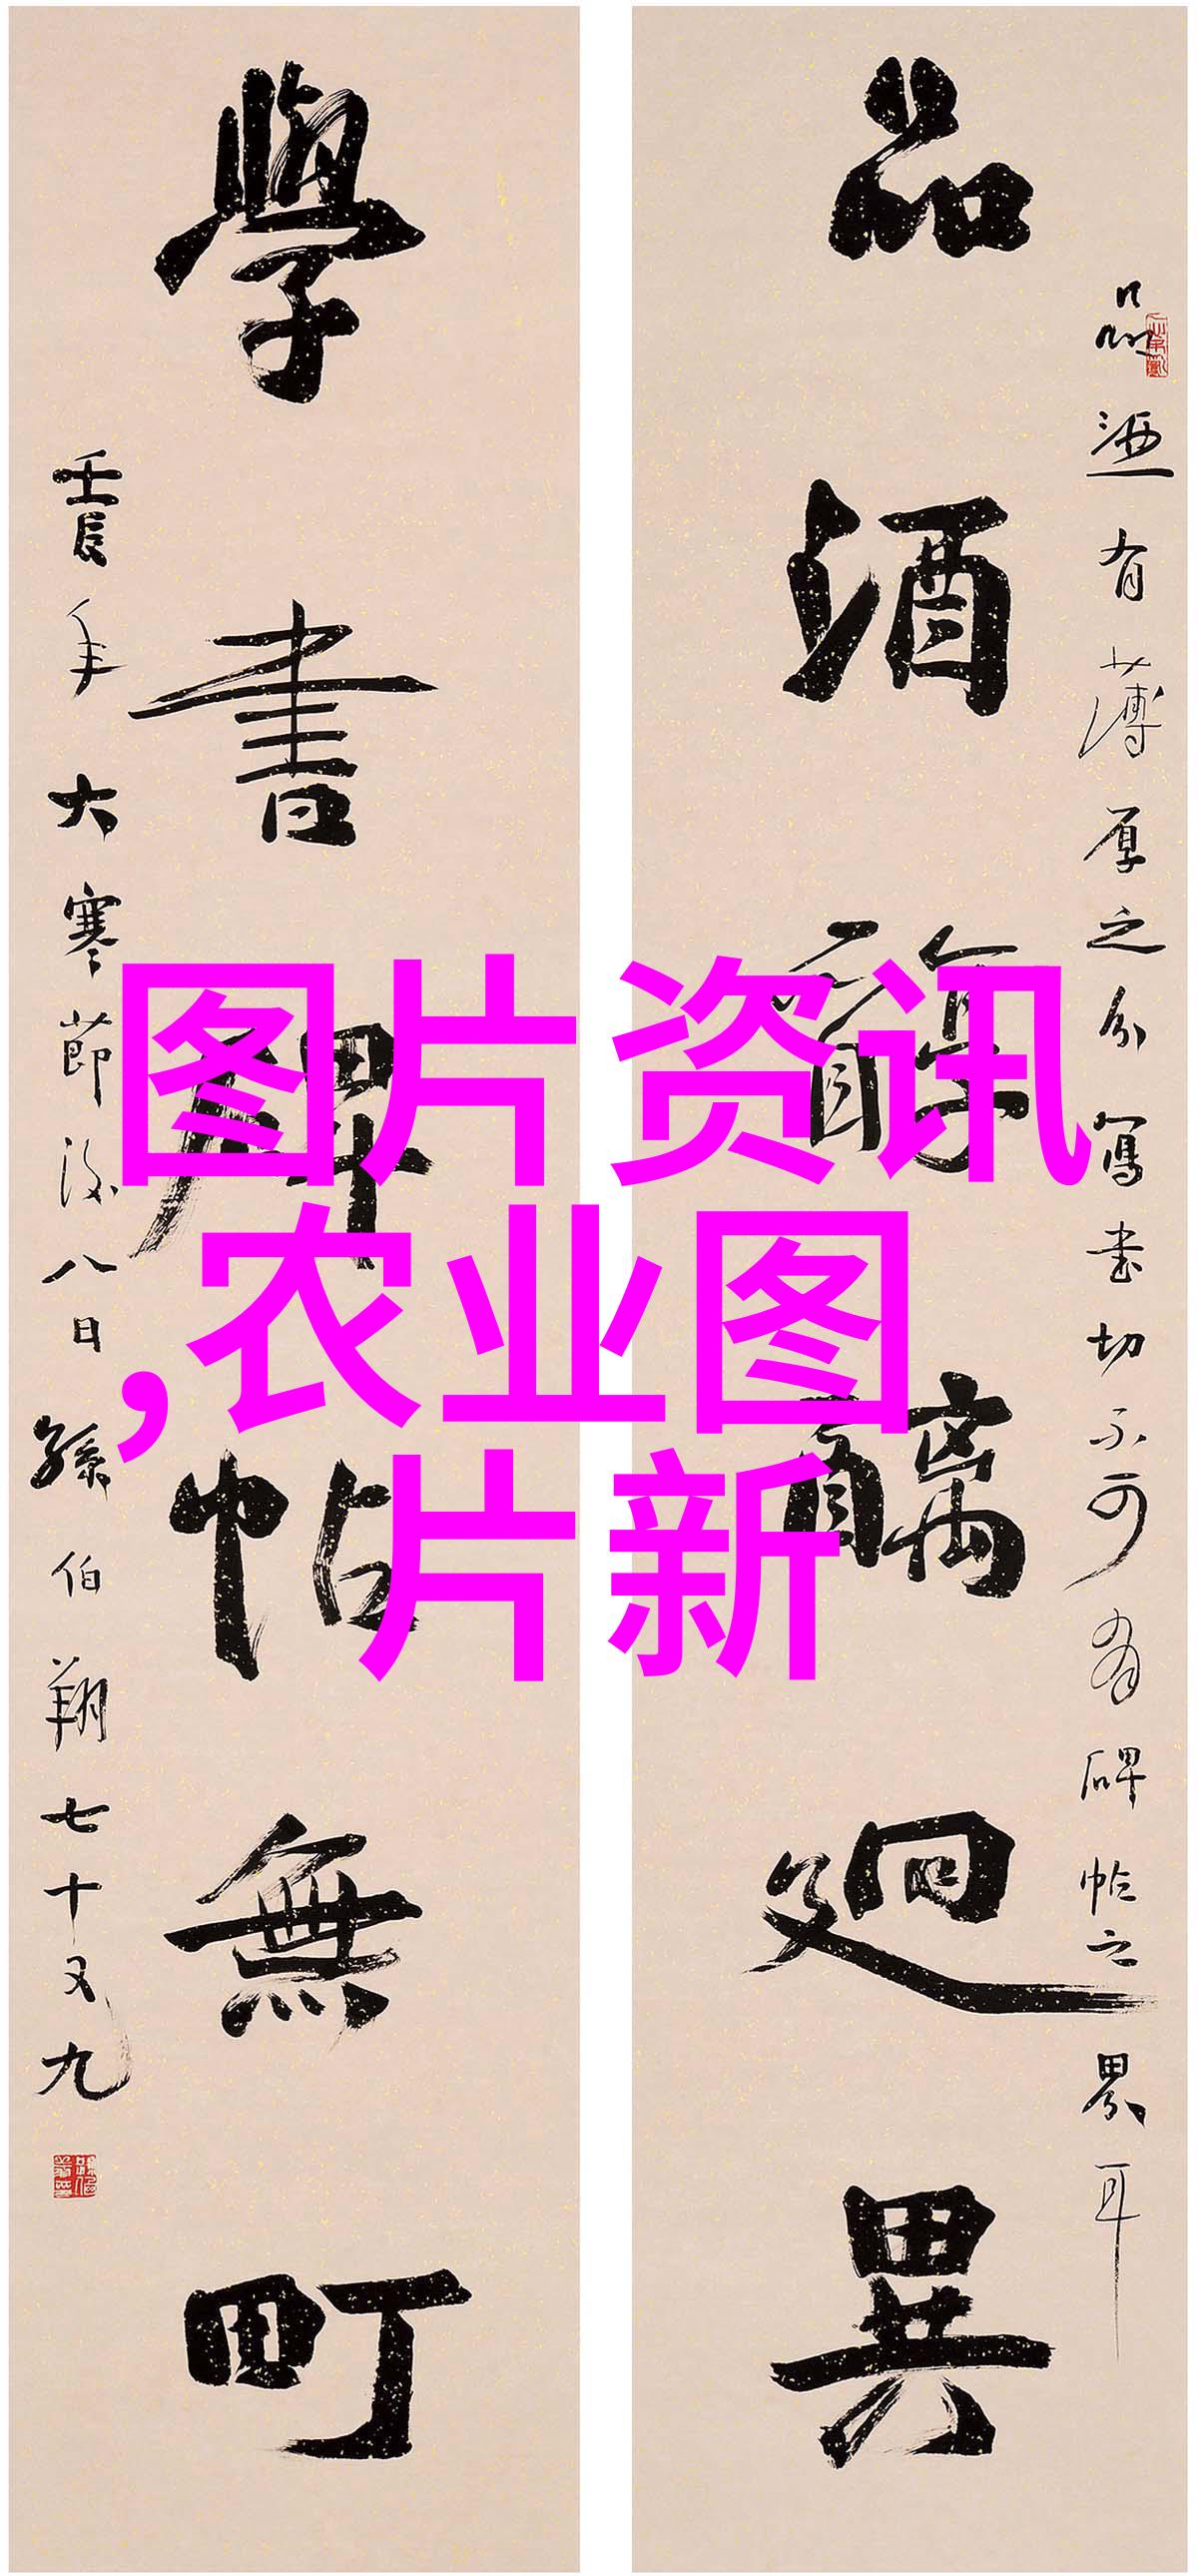 品酒有薄厚之分寫書切不可有碑帖之界耳
品酒醇醨廻異
學書碑帖無町
壬辰年大寒節後八日孫伯翔七十又九
图片资讯
,农业图
片新